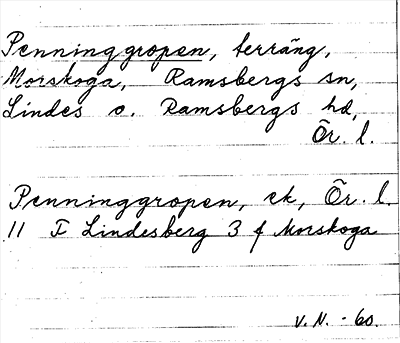 Penninggropen, terräng,
Morskoga, Ramsbergs sn,
Lindes o. Ramsbergs hd,
Ör. l.
Penninggropen, ek, Ör. l.
11 F Lindesberg 3 f Morskoga
V. N. - 60.